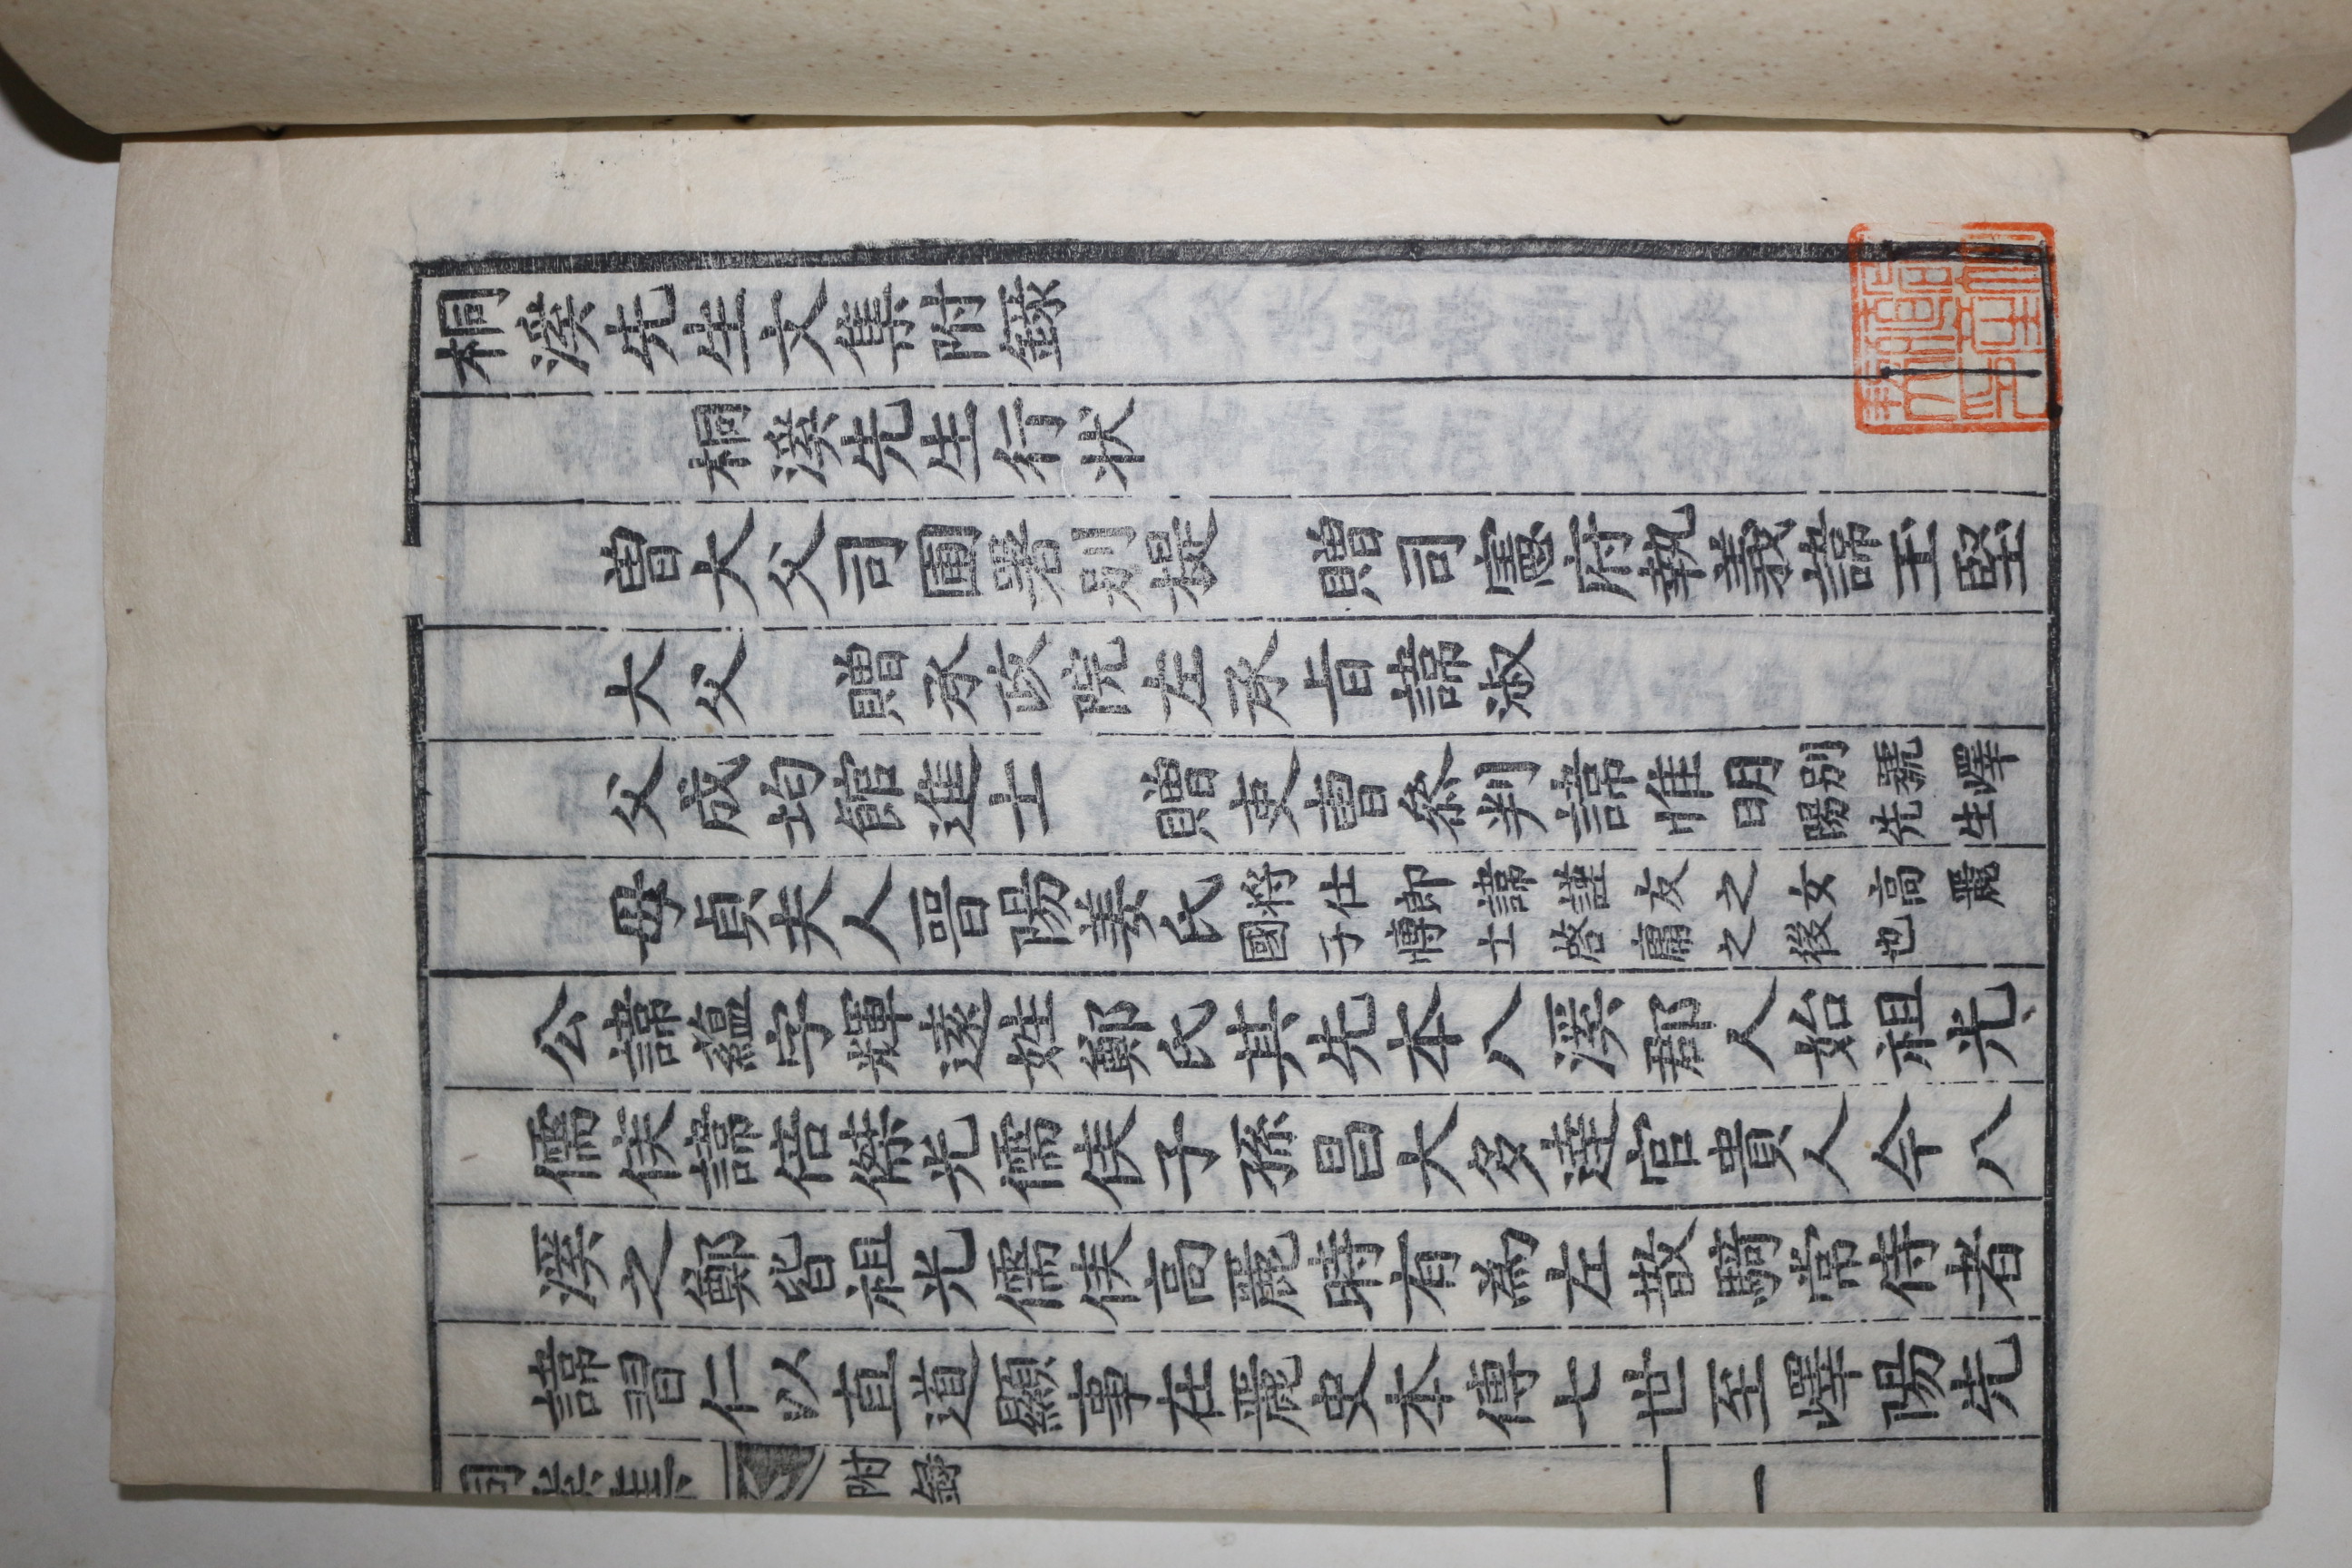 桐溪先生文集附錄
桐溪先生行状
曾大父司圃署別提 贈司憲府執義諱玉堅
大父 贈承政院左承旨諱淑
父成均館進士 贈吏曹叅判諱惟明 別號嶧陽先生
母貞夫人晉陽姜氏 將仕郎諱謹友之女高麗國子博士啓庸之後也
公諱蘊字輝遠姓鄭氏其先本八溪郡人始祖光
儒侯諱倍傑光儒侯子孫昌大多達官貴人今八
溪之鄭皆祖光儒侯高麗時有為左散騎常侍者
諱習仁以直道顯事在麗史本傳七世至嶧陽先
桐溪集 附録 一